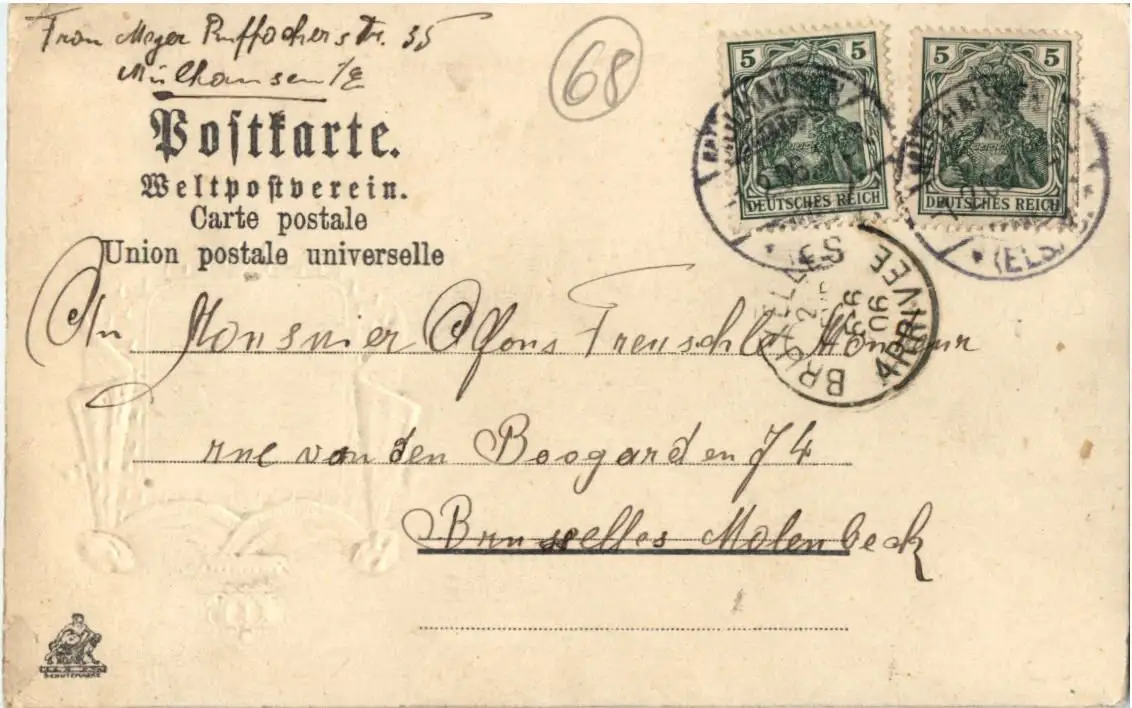 Frau Meyer Ruffacherstr. 35
Mülhausen i/E
68
Postkarte.
Weltpostverein.
Carte postale
Union postale universelle
5 5
DEUTSCHES REICH
5 5
DEUTSCHES REICH
MÜLHAUSEN
(ELS.)
BRUXELLES
2
9-6
06
ARRIVEE
An Monsnier Alfons Treuschler
rue van den Boogarden 74
Bruxelles Molenbeck
SCHUTZMARKE